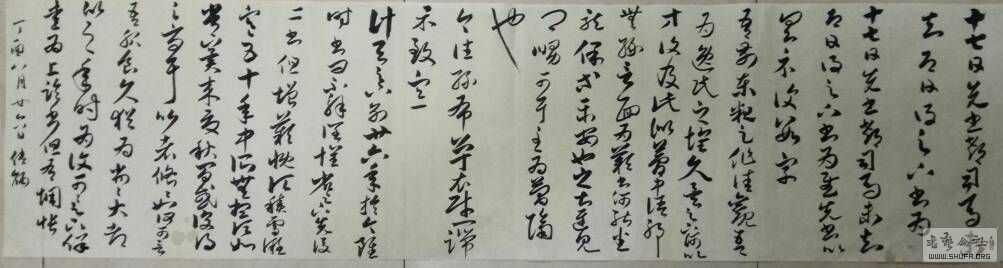 十七日先書郗司馬
未去即日得足下書為
十七日先書郗司馬未去
即日得足下書為慰先書以
具示復數字
吾前東粗足作佳觀吾
為逸民之懷久矣足下何以
方復及此似夢中語耶
無緣言面為歎書何能悉
龍保等平安也之甚遲見
卿舅可耳至為簡隔
也
今往絲布單衣財一端
示致意
計與足下別廿六年於今雖
時書問不解闊懷省足下先後
二書但增歎慨頃積雪凝
寒五十年中所無想頃如
常冀來夏秋間或復得
足下問耳比者悠悠如何可言
吾服食久猶為劣劣大都
比之年時為復可可足下保
愛為上臨書但有惆悵
丁酉八月廿六日
書藝公社
WWW.SHUFA.ORG